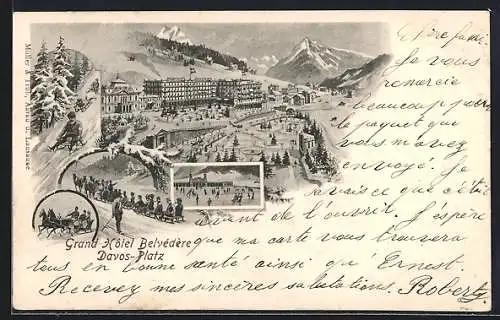 Chère famille.
Je vous
remercie
beaucoup pour
le paquet que
vous m'avez
envoyé. Je
savais que c'était
avant de l'ouvrir. J'espère
que ma carte vous trouvera
tous en bonne santé ainsi qu'Ernest.
Recevez mes sincères salutations. Robert.
Grand Hôtel Belvédère
Davos-Platz
Müller &